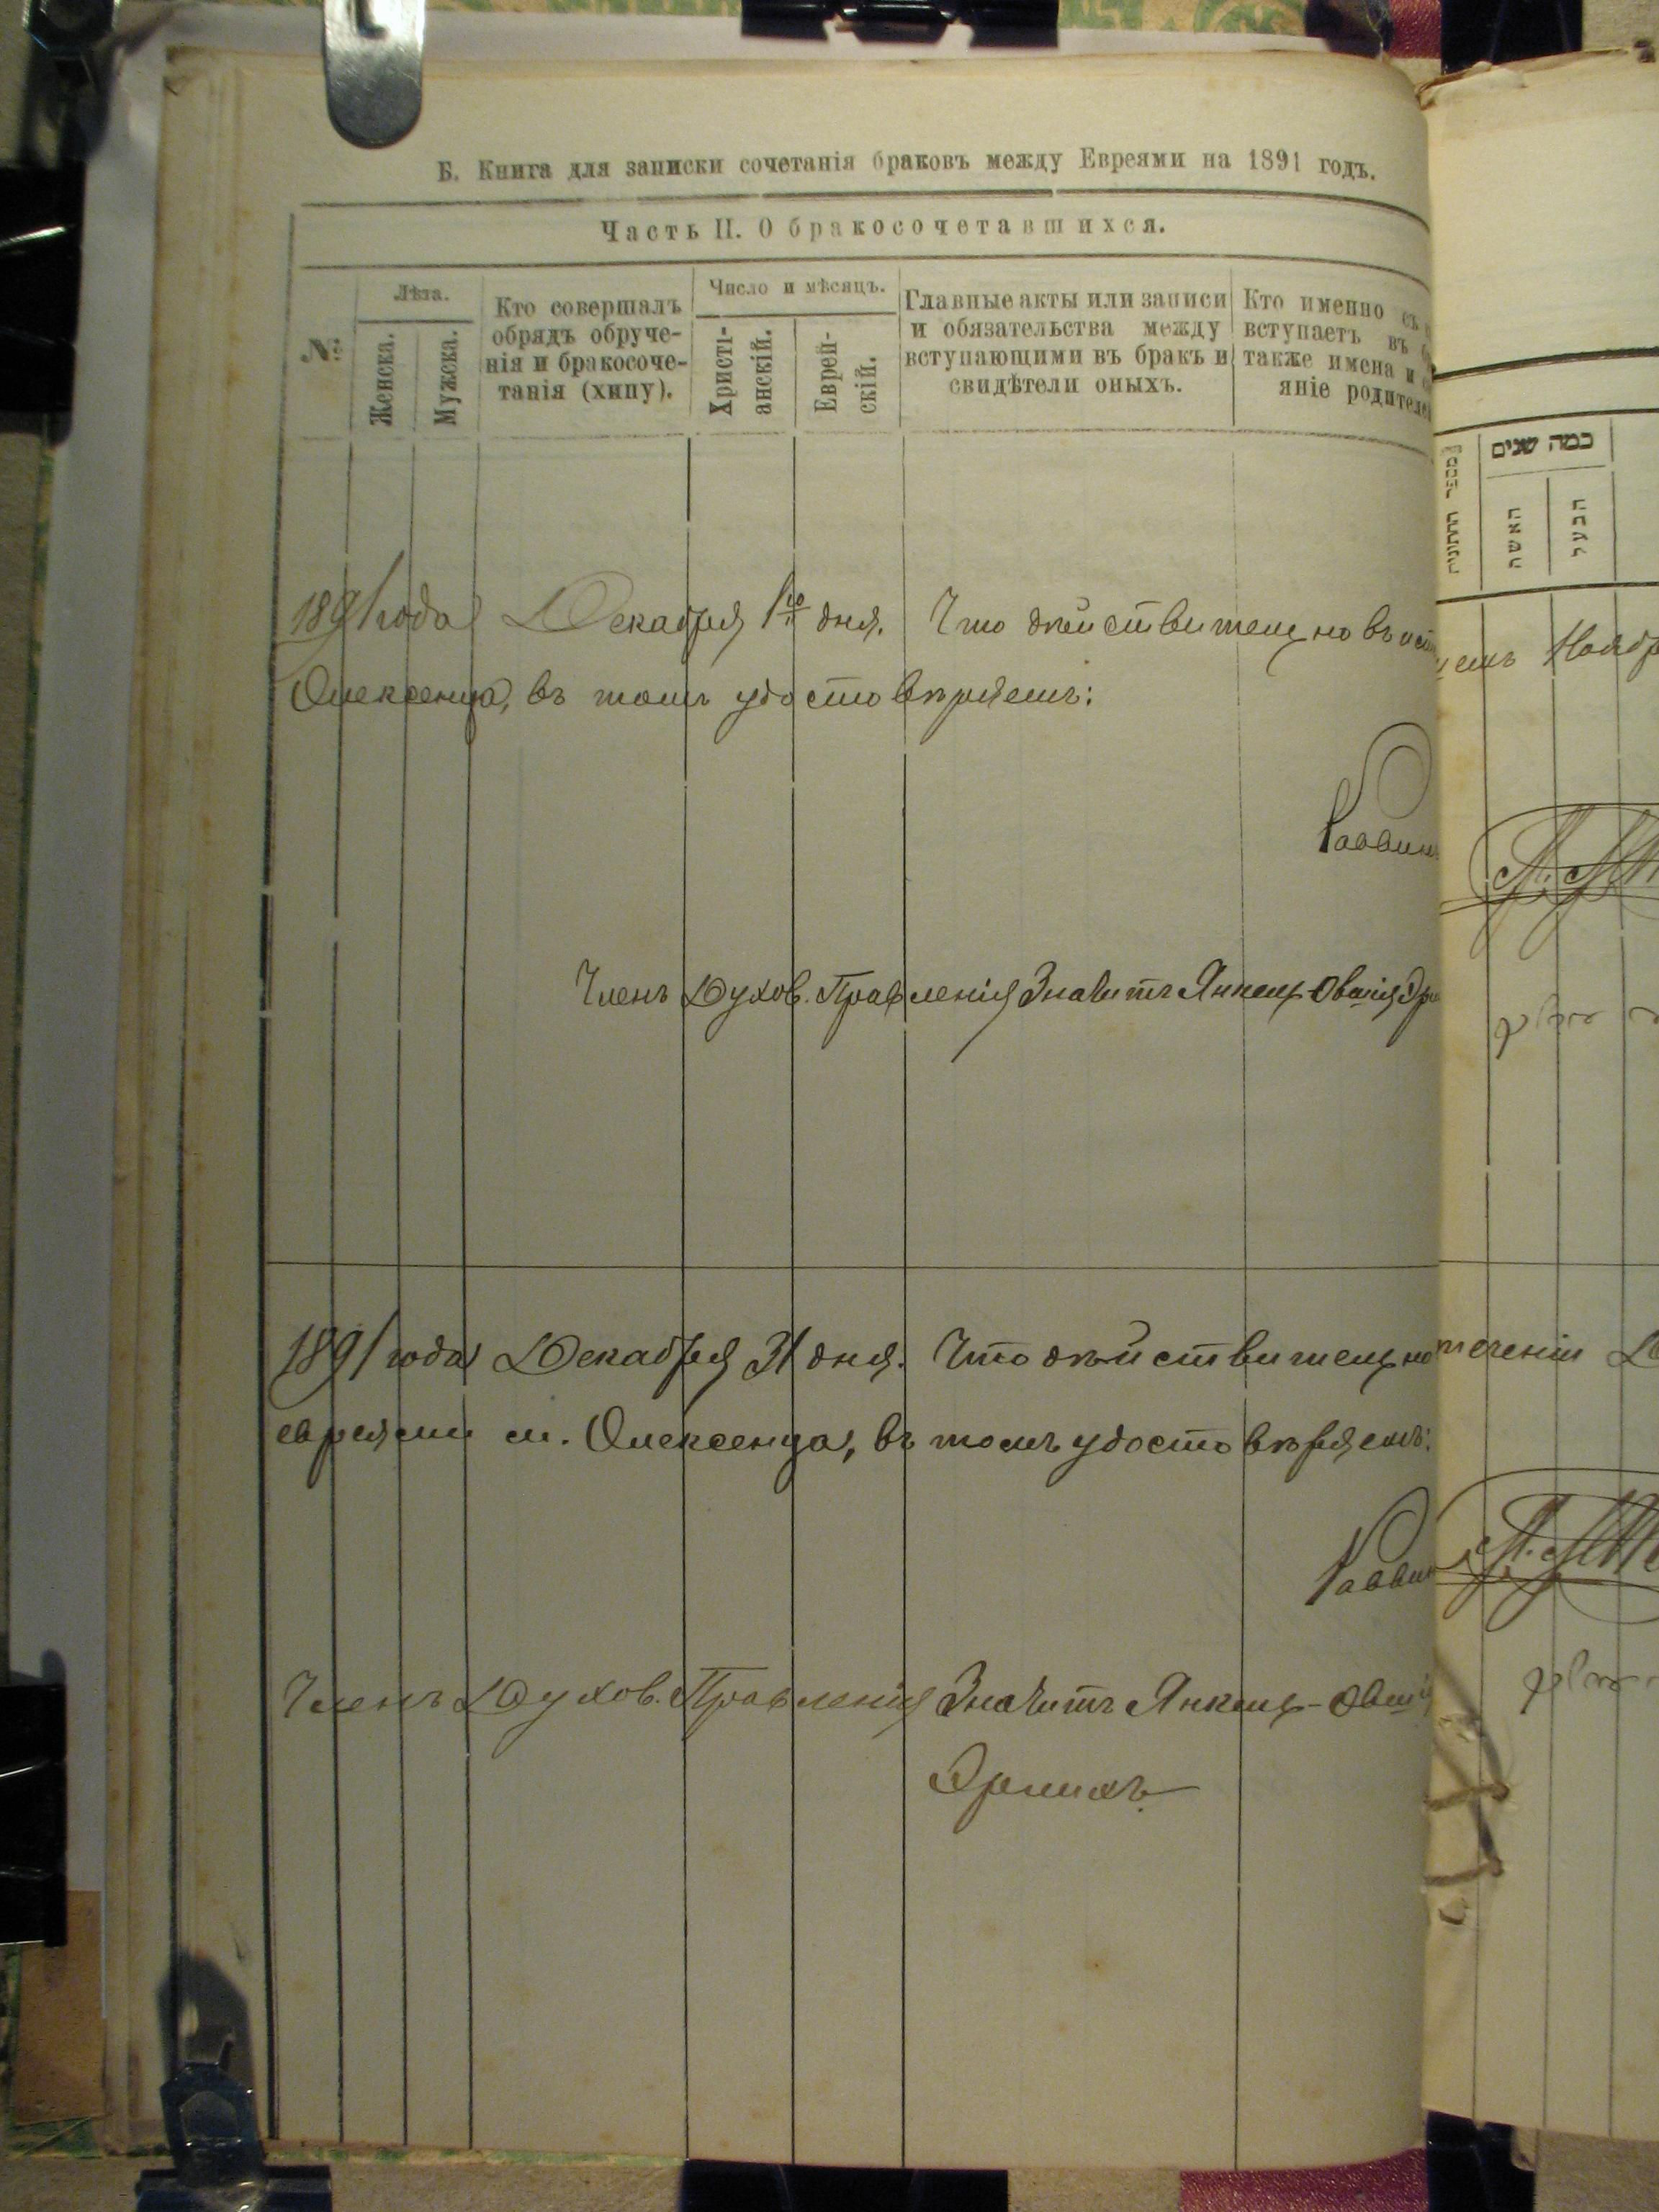 Б. Книга для записки сочетанія браковъ между Евреями на 1891 годъ.
Часть II. О бракосочетавшихся.
№
Лѣта.
Женска.
Мужска.
Кто совершалъ
обрядъ обруче-
нія и бракосоче-
танія (хипу).
Число и мѣсяцъ.
Христі-
анскій.
Еврей-
скій.
Главные акты или записи
и обязательства между
вступающими въ бракъ и
свидѣтели оныхъ.
Кто именно съ
вступаетъ въ
также имена и
яніе родителе
מספר החתונות
כמה שנים
האשה
הבעל
1891 года Декабря 1го дня. Что дѣйствительно въ
Олексенца, въ томъ удостовѣряемъ:
Раввинъ
Членъ Духов. Правленія Значитъ Янкель-Овшія
1891 года Декабря 31 дня. Что дѣйствительно течении
евреями м. Олексенца, въ томъ удостовѣряемъ:
Раввин
Членъ Духов. Правленія Значитъ Янкель-Овшія
Эрлихъ